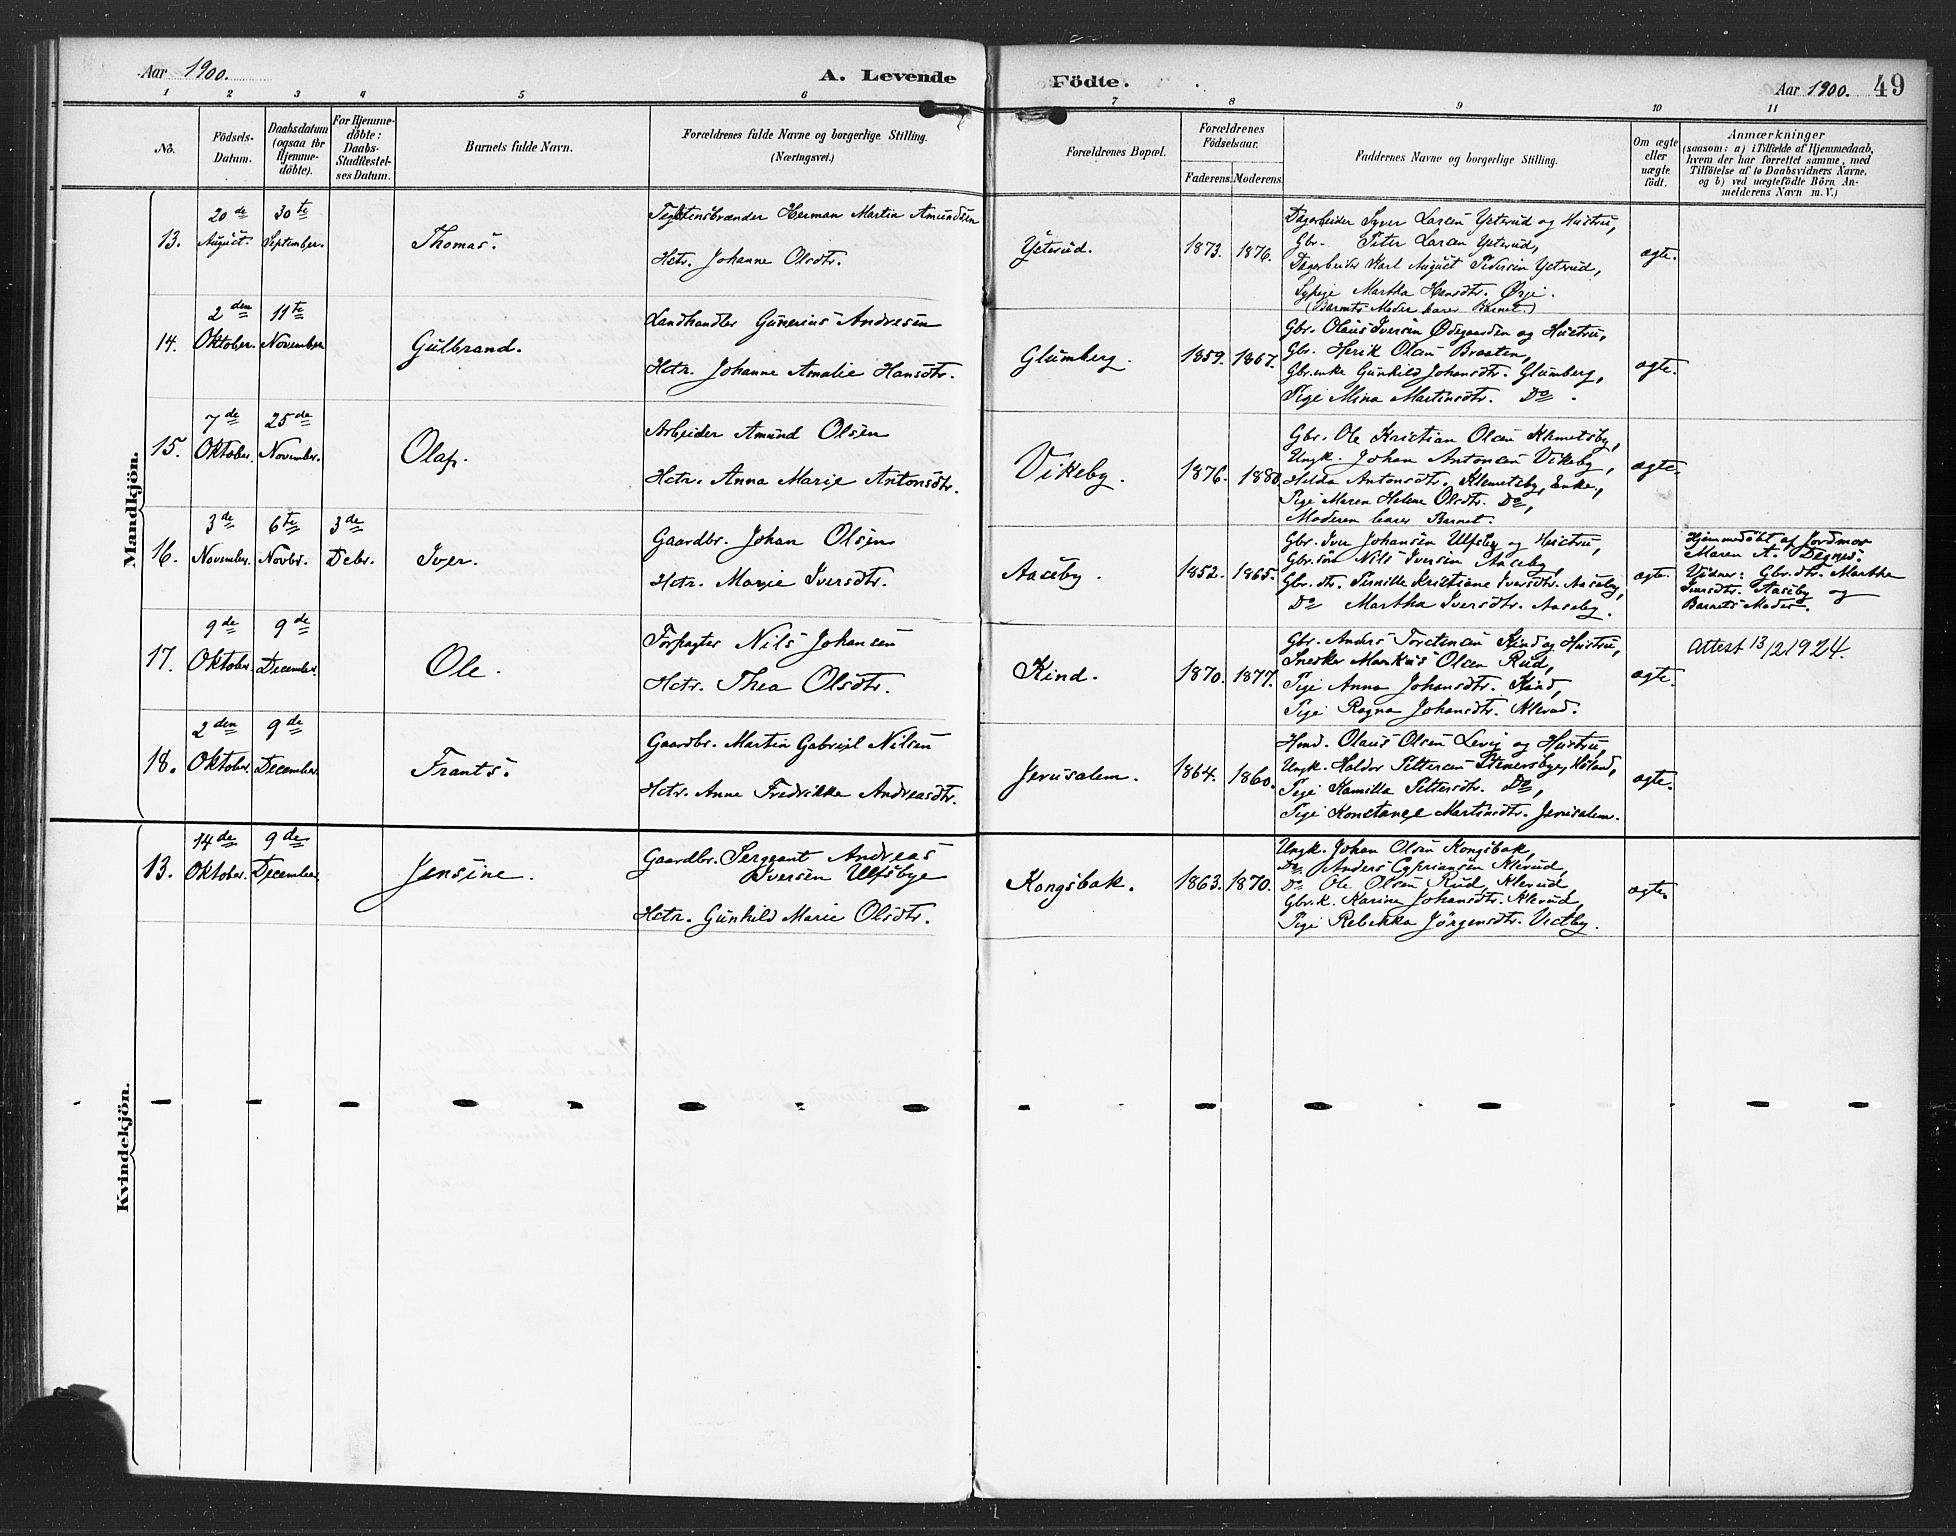 Aar 1900.
A. Levende
Födte.
Aar 1900.
49
1 2 3 4 5 6 7 8 9 10 11
No.
Födsels-
Datum.
Daabsdatum
(ogsaa for
Hjemme-
döbte).
For Hjemme-
döbte:
Daabs-
Stadfæstel-
ses Datum.
Barnets fulde Navn.
Forældrenes fulde Navne og borgerlige Stilling.
(Næringsvei.)
Forældrenes Bopæl.
Forældrenes
Födselsaar.
Faderens. Moderens.
Faddernes Navne og borgerlige Stilling.
Om ægte
eller
uægte
födt.
Anmærkninger
(saasom: a) i Tilfælde af Hjemmedaab,
hvem der har forrettet samme, med
Tilföielse af to Daabsvidners Navne,
og b) ved uægtefödte Börn An-
melderens Navn m. V.)
Mandkjön.
13.
20de
August.
30te
September.
Thomas.
Teglstensbrænder Herman Martin Amundsen
Hstr. Johanne Olsdtr.
Ysterud.
1873. 1876.
Dagarbeider Syver Larsen Ysterud og Hustru,
Gbr. Peter Larsen Ysterud,
Dagarbeider Karl August Pedersen Ysterud,
Sypige Martha Hansdtr. Ørje.
(Barnets Moder barer Barnet.)
ægte.
14.
2den
Oktober.
11te
November.
Gulbrand.
Landhandler Gunerius Andresen
Hstr. Johanne Amalie Hansdtr.
Glumberg.
1859. 1867.
Gbr. Olaus Iversen Ødegaarden og Hustru,
Gbr. Henrik Olsen Braaten,
Gbr.enke Gunhild Johansdtr. Glumberg,
Pige Mina Martinsdtr. Do.
ægte.
15.
7de
Oktober.
25de
November.
Olaf.
Arbeider Amund Olsen
Hstr. Anna Marie Antonsdtr.
Vikeby.
1876. 1880.
Gbr. Ole Kristian Olsen Klemetsby,
Ungk. Johan Antonsen Vikeby,
Hilda Antonsdtr. Klemetsby, Enke,
Pige Maren Helene Olsdtr. Do,
Moderen barer Barnet.
ægte.
16.
3de
November.
6te
Novbr.
3de
Debr.
Iver.
Gaardbr. Johan Olsen
Hstr. Marie Iversdtr.
Aaseby.
1852. 1865.
Gbr. Iver Johansen Ulfsby og Hustru,
Gbr.sön Nils Iversen Aaseby,
Gbr. dtr. Pernille Kristiane Iversdtr. Aaseby,
Do Martha Iversdtr. Aaseby.
ægte.
Hjemmedöbt af Jordmor
Maren A. Degnes.
Vidner: Gbr.dtr. Martha
Iversdtr. Aaseby og
Barnets Moder.
17.
9de
Oktober.
9de
December.
Ole.
Forpagter Nils Johansen
Hstr. Thea Olsdtr.
Kind.
1870. 1877.
Gbr. Anders Torstensen Kind og Hustru,
Snedker Markus Olsen Rud,
Pige Anna Johansdtr. Kind,
Pige Ragna Johansdtr. Klevud.
ægte.
Attest 13/2 1924.
18.
2den
Oktober.
9de
December.
Frants.
Gaardbr. Martin Gabriel Nilsen
Hstr. Anne Fredrikke Andreasdtr.
Jerusalem.
1864. 1860.
Hmd. Olaus Olsen Levie og Hustru,
Ungk. Haldor Pettersen Stenersbye, Höland,
Pige Kamilla Pettersdtr. Do,
Pige Konstance Martinsdtr. Jerusalem.
ægte.
Kvindekjön.
13.
14de
Oktober.
9de
December.
Jensine.
Gaardbr. Sergeant Andreas
Iversen Ulfsbye
Hstr. Gunhild Marie Olsdtr.
Kongsbak.
1863. 1870.
Ungk. Johan Olsen Kongsbak,
Do Anders Cypriansen Klevud,
Do Ole Olsen Rud, Klevud,
Gbr.k. Karine Johansdtr. Klevud,
Pige Rebekka Jörgensdtr. Vestby.
ægte.